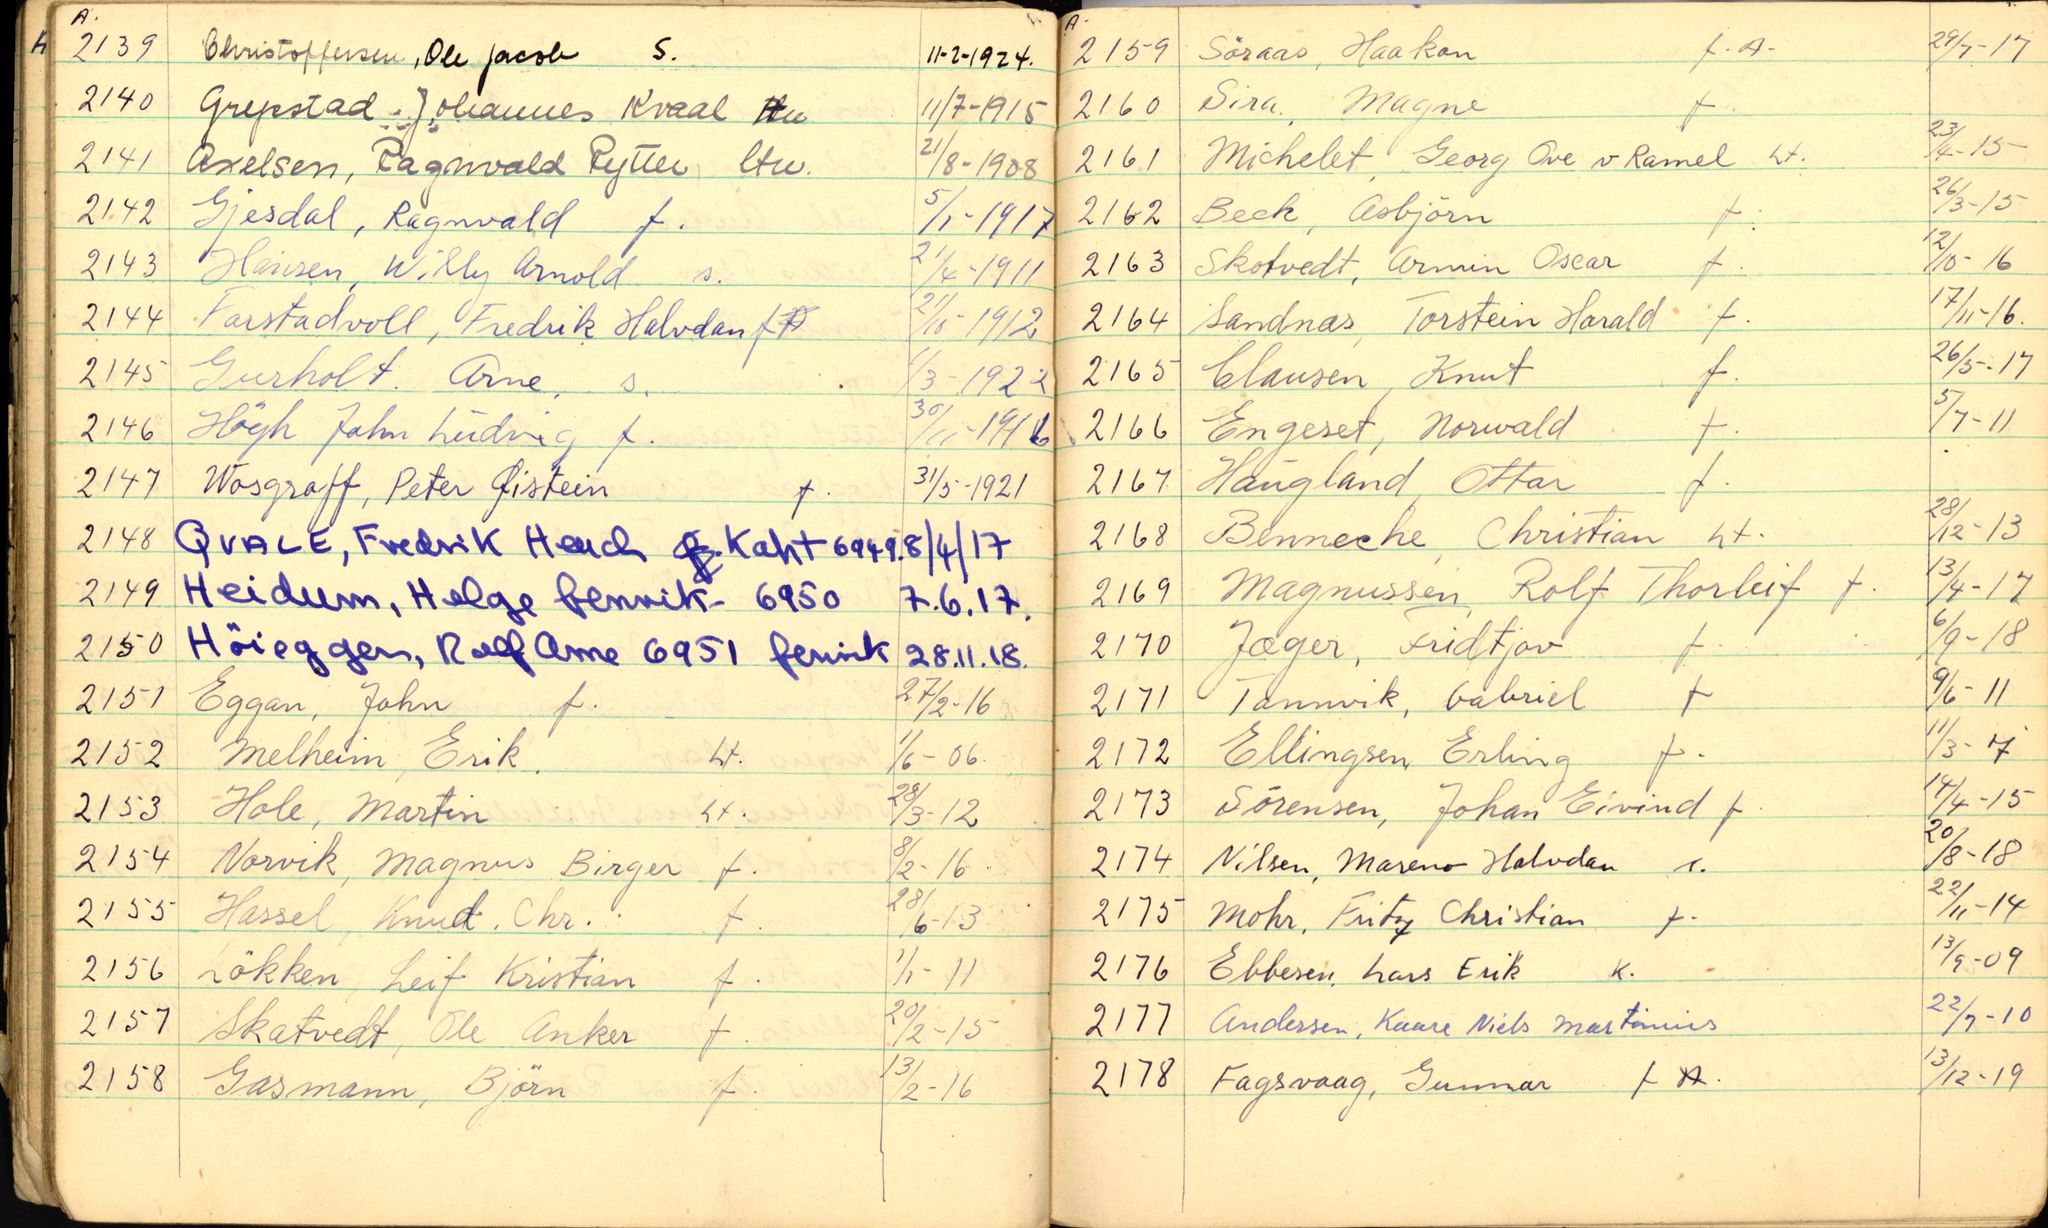 A.
2139 Christoffersen, Ole Jacob S. 11-2-1924.
2140 Grepstad, Johannes Kvaal 11/7-1915
2141 Axelsen, Ragnvald Rytter ltn. 21/8-1908
2142 Gjesdal, Ragnvald f. 5/1-1917
2143 Hansen, Willy Arnold s. 21/4-1911
2144 Farstadvoll, Fredrik Halvdan f 21/10-1912
2145 Gurholt. Arne, s. 1/3-1922
2146 Högh John Ludvig f. 30/11-1916
2147 Wosgraff, Peter Øistein f. 31/5-1921
2148 QVALE, Fredrik Hench Kapt 6949. 8/4/17
2149 Heidum, Helge fenrik- 6950 7.6.17.
2150 Höieggen, Rolf Arne 6951 fenrik 28.11.18.
2151 Eggan, John f. 27/2-16
2152 Melheim, Erik. Lt. 1/6-06.
2153 Hole, Martin Lt. 28/3-12
2154 Norvik, Magnus Birger f. 8/2-16
2155 Hassel, Knut. Chr. f. 28/6-13
2156 Lökken, Leif Kristian f. 1/1-11
2157 Skatvedt, Ole Anker f. 20/2-15
2158 Gasmann, Björn f. 13/2-16
A.
2159 Söraas, Haakon f. A. 29/7-17
2160 Sira, Magne f.
2161 Michelet, Georg Ove v Ramel Lt. 23/4-15
2162 Beck, Asbjörn f. 26/3-15
2163 Skotvedt, Armin Oscar f. 12/10-16
2164 Sandnas, Torstein Harald f. 17/11-16.
2165 Clausen, Knut f. 26/5-17
2166 Engeset, Norwald f. 5/7-11
2167 Haugland, Ottar f.
2168 Benneche, Christian Lt. 28/12-13
2169 Magnussen, Rolf Thorleif f. 13/4-17
2170 Jæger, Fridtjov f. 6/9-18
2171 Tannvik, Gabriel f 9/6-11
2172 Ellingsen, Erling f. 11/3-17
2173 Sörensen, Johan Eivind f. 14/4-15
2174 Nilsen, Mareno Halvdan s. 20/8-18
2175 Mohr, Fritz Christian f. 22/11-14
2176 Ebbesen, Lars Erik K. 13/9-09
2177 Andersen, Kaare Niels Martinius 22/7-10
2178 Fagsvaag, Gunnar f A. 13/12-19